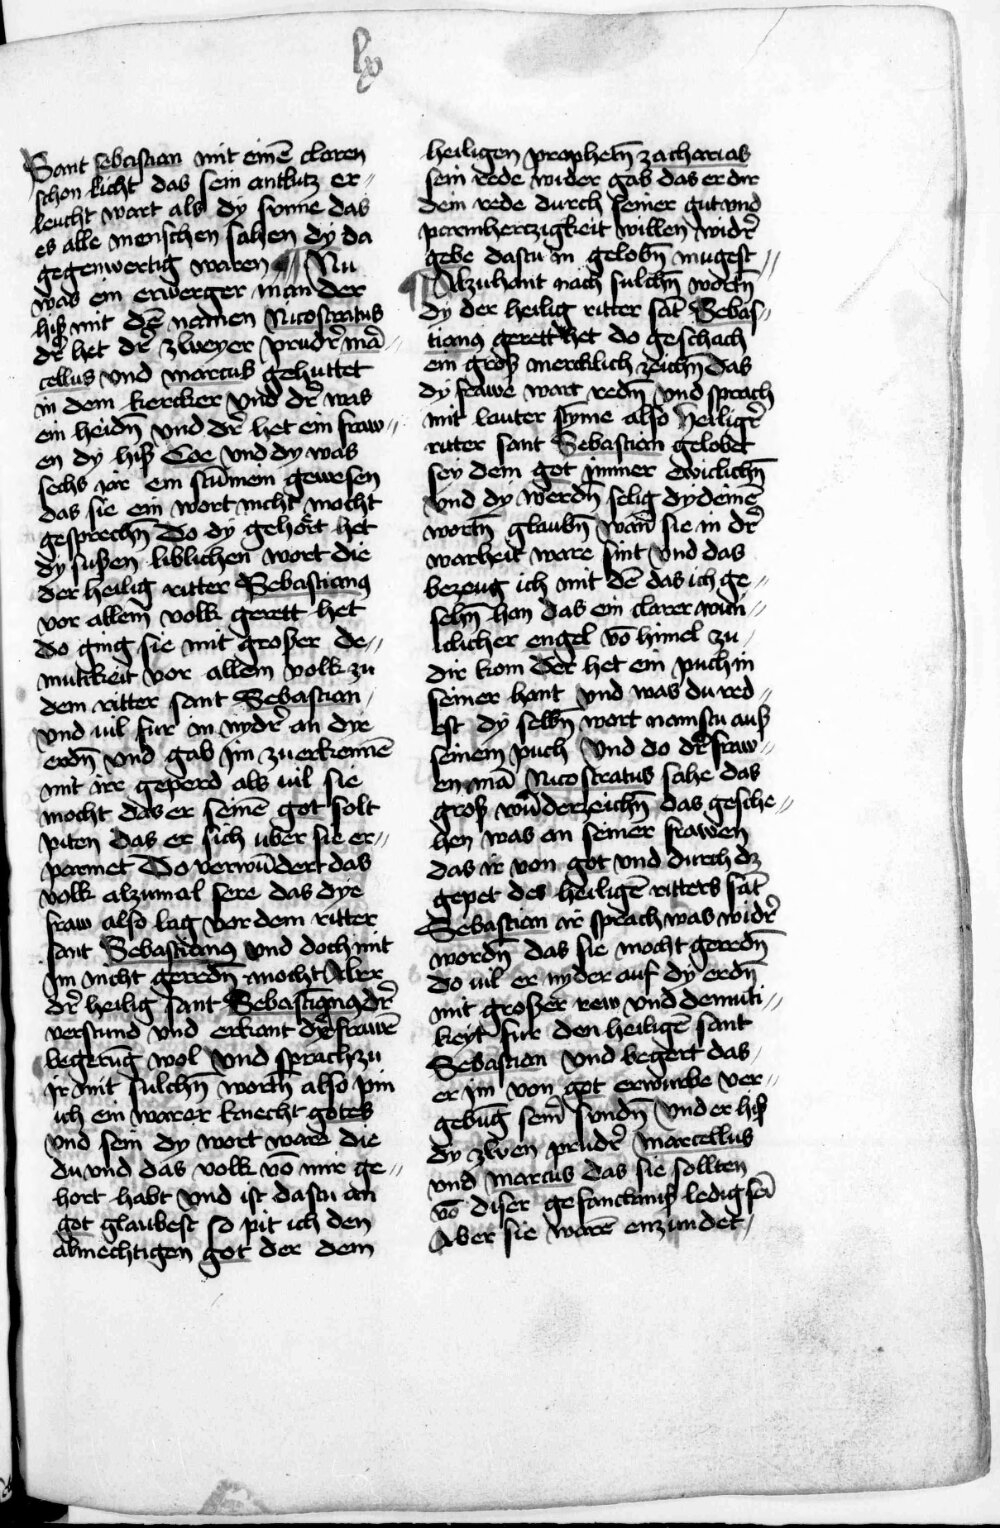 lx
Sant sebastian mit einē claren
schon licht das sein antlutz er〃
leucht wart als dy sunne das
es alle menschen sahen dy da
gegenwertig waren ¶ Nu
was ein erwerger man der
hiß mit dē namen Nicostratus
dr̄ het dr̄ zweyer prudr̄ mā〃
cellus vnd marcus gehuttet
in dem kercker vnd dr̄ was
ein heidn̄ vnd dr̄ het ein fraw〃
en dy hiß Coe vnd dy was
sechs iar ein stūmein gewesen
das sie ein wort nicht mocht
gesprechn̄ Do dy gehort het
dy sußen liblichen wort die
der heilig ritter Sebastianus
vor allem volk gerett het
do ging sie mit großer de〃
mutikeit vor allem volk zu
dem ritter sant Sebastian
vnd uil fur in nydr̄ an dye
erdn̄ vnd gab jm zu erkennē
mit ire geperd als uil sie
mocht das er seinē got solt
piten das er sich uber sie er〃
permet Do verwūdert das
volk alzumal sere das dye
fraw also lag vor dem ritter
sant Sebastianus vnd doch mit
jm nicht geredn̄ mocht Aber
dr̄ heilig sant Sebastianus dr̄
verstund vnd erkant dyē frawē
begerūg wol vnd sprach zu
jr mit sulchn̄ wortn̄ also pin
ich ein warer knecht gotes
vnd sein dy wort ware die
du vnd das volk vō mir ge〃
hort habt vnd ist dastu an
got glaubest so pit ich den
almechtigen got der dem
heiligen prophetn̄ zacharias
sein rede wider gab das er dir
dein rede durch seiner gut vnd
parmhertzigkeit willen widr̄
gebe dastu in gelobn̄ mugest〃
¶ Alzuhant nach sulchn̄ wortn̄
dy der heilig ritter sāt Sebas〃
tianus gerett het do geschach
ein groß mercklich zeichn̄ das
dy frawe wart redn̄ vnd sprach
mit lauter styme also heiligr̄
ritter sant Sebastian gelobet
sey dem got jmmer ewiclichn̄
vnd dy werdn̄ selig dy deinē
wortn̄ glaubn̄ wān sie in dr̄
warheit ware sint vnd das
bezeug ich mit dē das ich ge〃
sehn̄ han das ein clarer wun〃
iclicher engel vō himel zu
dir kom der het ein puch in
seiner hant vnd was du red〃
est dy selbn̄ wort namstu auß
seinem puch vnd do dr̄ fraw〃
en mā Nicostratus sahe das
groß wūderzeichn̄ das gesche〃
hen was an seiner frawen
das ir von got vnd durch dz
gepet des heiligē ritters sāt
Sebastian ir sprach was widr̄
wordn̄ das sie mocht geredn̄
do uil er nyder auf dy erdn̄
mit großer rew vnd demuti〃
keyt fur den heiligē sant
Sebastian vnd begert das
er jm von got erwurbe ver〃
gebūg seinr̄ sundn̄ vnd er hiß
dy zwen prudr̄ marcellus
vnd marcus das sie sollten
vō diser gefancknuß ledig sei
Aber sie warē enzundet